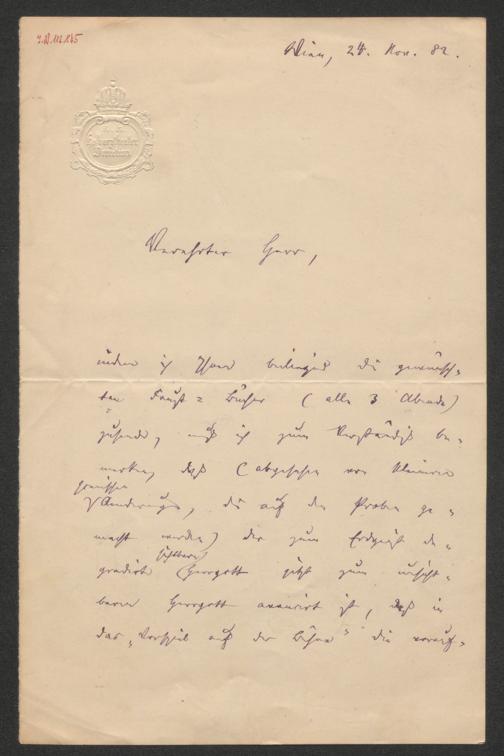 I.N. 112.145
Wien, 24. Nov. 82.
Verehrter Herr,
indem ich Ihnen beiliegend die gewünsch-
ten Faust-Bücher (alle 3 Abende)
zusende, muß ich zum Verständniß be-
merken, daß (abgesehen von kleinen
scenischen
Aenderungen, die auf den Proben ge-
macht worden) der zum Erdgeist de-
sichtbare
gradirte Herrgott jetzt zum unsicht-
baren Herrgott avancirt ist, daß in
das „Vorspiel auf der Bühne" die